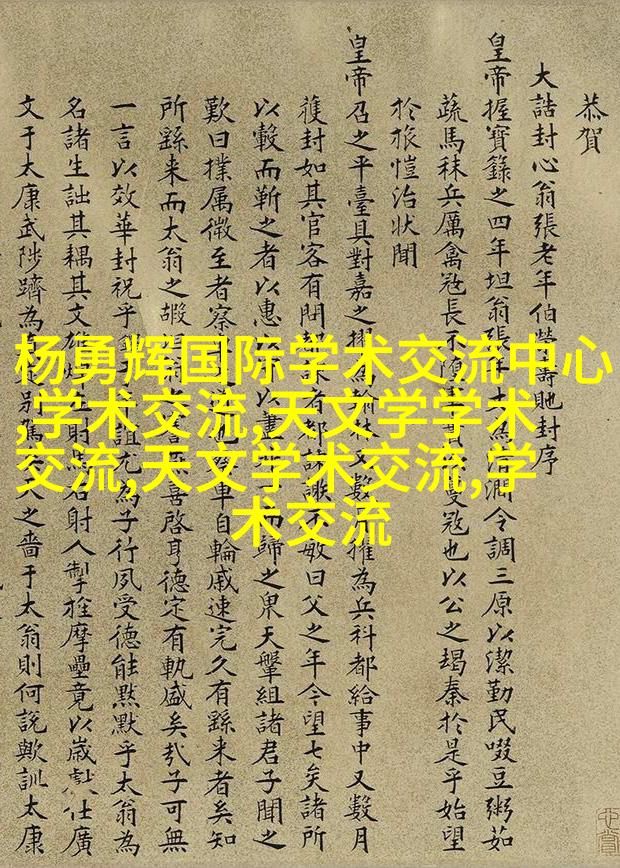 恭賀
大誥封心翁張老年伯榮壽貤封序
皇帝握寶籙之四年坦翁張年令調三原以潔勤民啜豆粥如
蔬馬秣兵厲禽冦長不冦也以公之竭秦於是乎始望
於旅愷治狀聞
皇帝召之平臺具對嘉之擢為兵科都給事中又數月
獲封如其官客有問敏曰父之年今望七矣諸所
以轂而斬之者以惠歸之泉天犖組諸君子聞之
歎曰撲属微至者察車自輪戚速完久有繇来者矣知
所繇来而太翁之嘏喜啓亨德定有軌盛矣㢤子可無
一言以效華封祝乎誼尤為子行夙受德能黙默乎太翁為
名諸生詘其耦其文射石射人掣拴摩壘竟以歳仕廣
文于太康武陟躋為别人之嗇于太翁則何説歟訓太康
杨勇辉国际学术交流中心
,学术交流,天文学学术
交流,天文学术交流,学
术交流